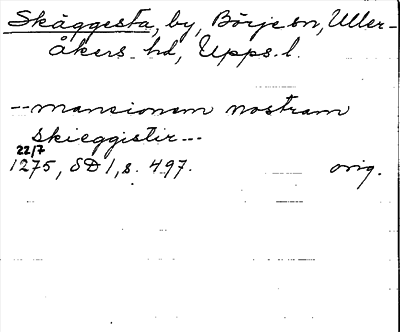 Skäggesta, by, Börje sn, Uller-
åkers hd, Upps. l.
-- mansionem nostram
skieggistir ---
22/7
1275, SD 1, s. 497. orig.